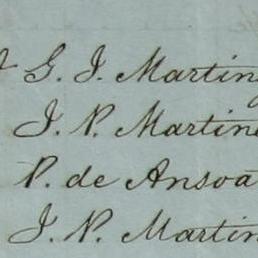 G. J. Martin
J. P. Martin
P. de Ansoa
J. N. Martin